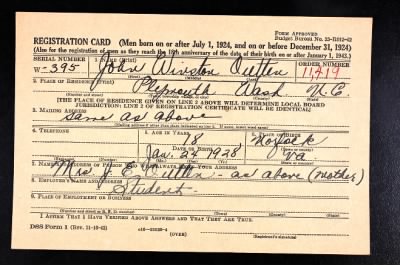 FORM APPROVED
Budget Bureau No. 33-R012-42
REGISTRATION CARD (Men born on or after July 1, 1924, and on or before December 31, 1924)
(Also for the registration of men as they reach the 18th anniversary of the date of their birth on or after January 1, 1943.)
SERIAL NUMBER
1. NAME (Print)
ORDER NUMBER
W-395
John Winston
11419
2. PLACE OF RESIDENCE (Print)
Plymouth Wash N.C.
[THE PLACE OF RESIDENCE GIVEN ON LINE 2 ABOVE WILL DETERMINE LOCAL BOARD
JURISDICTION; LINE 2 OF REGISTRATION CERTIFICATE WILL BE IDENTICAL]
3. MAILING ADDRESS
Same as above
4. TELEPHONE
5. AGE IN YEARS
6. PLACE OF BIRTH
18
Norfolk
DATE OF BIRTH
Jan. 24 1928
Va
7. NAME AND ADDRESS OF PERSON WHO WILL ALWAYS KNOW YOUR ADDRESS
Mrs. J. E. - as above (mother)
8. EMPLOYER'S NAME AND ADDRESS
Student
9. PLACE OF EMPLOYMENT OR BUSINESS
I AFFIRM THAT I HAVE VERIFIED ABOVE ANSWERS AND THAT THEY ARE TRUE.
DSS Form 1 (Rev. 11-16-42)
(OVER)
(Registrant's signature)